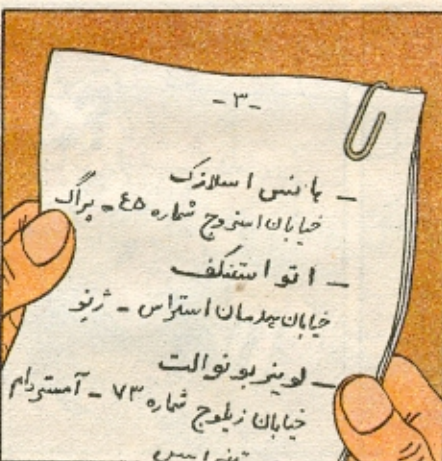 -۳-
- هانس اسلازک
خیابان استروج شماره ٤۵ - پراگ
- اتو استنکف
خیابان بهلمان استراس - ژنو
- لوینر بونوالت
خیابان زیلوج شماره ۷۳ - آمستردام